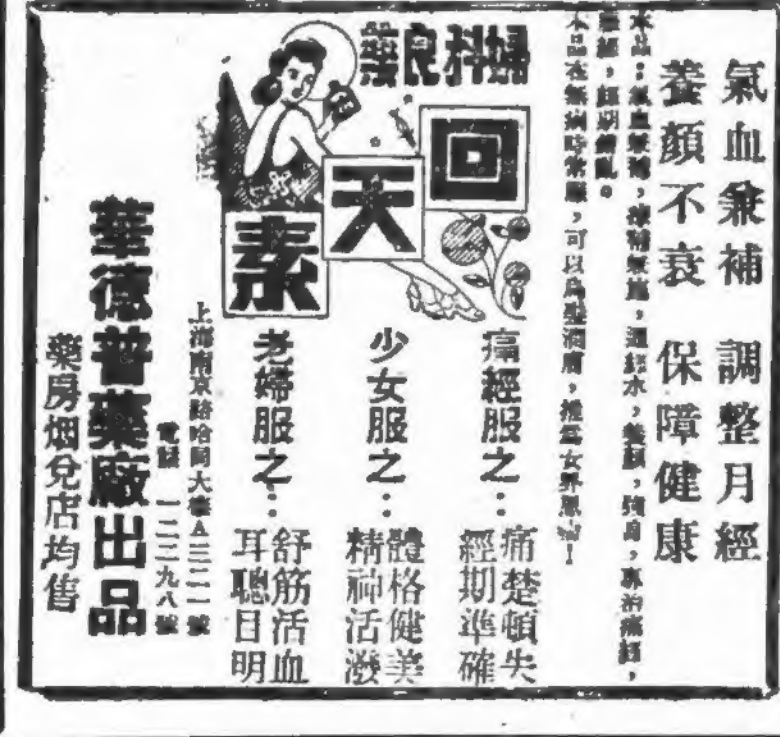 氣血兼補 調整月經
養顏不衰 保障健康
本品:氣血兼補,補兼施,通經水,養顏,強身,專治痛經,
經,經期錯亂。
本品在無病時常服,可以烏髮潤膚,推為女界恩物!
婦科良藥
回天素
痛經服之:
痛楚頓失
經期準確
少女服之:
體格健美
精神活潑
老婦服之:
舒筋活血
耳聰目明
上海南京路哈同大樓A三二一號
電話 一二二九八號
華德普藥廠出品
藥房烟兌店均售